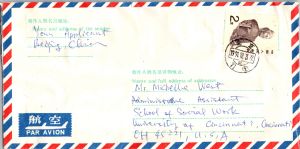 寄件人姓名地址
Name and address of the sender
Your Applicant
Beijing, China
2
收件人姓名及详细地址
Name and full address of addressee
Ms. Michelle West
Administrative Assistant
School of Social Work
University of Cincinnati, Cincinnati
OH 45221, U.S.A
航空
PAR AVION